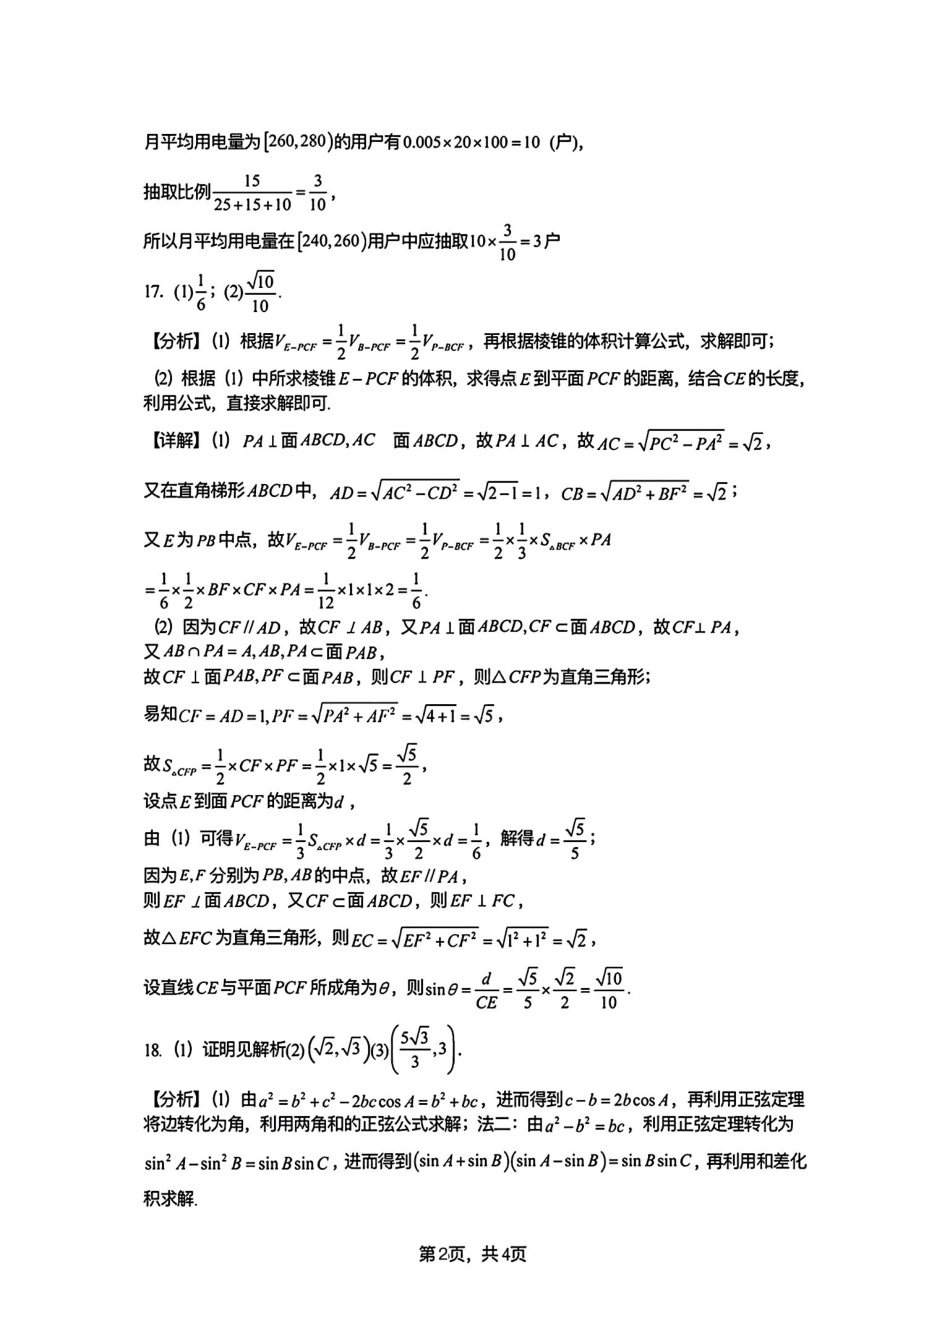 月平均用电量为[260,280)的用户有0.005×20×100=10 (户),
抽取比例15/(25+15+10)=3/10,
所以月平均用电量在[240,260)用户中应抽取10×3/10=3户
17. (1)1/6; (2)√10/10.
【分析】(1) 根据V_{E-PCF}=1/2V_{B-PCF}=1/2V_{P-BCF}, 再根据棱锥的体积计算公式, 求解即可;
(2) 根据 (1) 中所求棱锥E-PCF的体积, 求得点E到平面PCF的距离, 结合CE的长度,
利用公式, 直接求解即可.
【详解】(1) PA⊥面ABCD,AC 面ABCD, 故PA⊥AC, 故AC=√(PC²-PA²)=√2,
又在直角梯形ABCD中, AD=√(AC²-CD²)=√(2-1)=1, CB=√(AD²+BF²)=√2;
又E为PB中点, 故V_{E-PCF}=1/2V_{B-PCF}=1/2V_{P-BCF}=1/2×1/3×S_{△BCF}×PA
=1/6×1/2×BF×CF×PA=1/12×1×1×2=1/6.
(2) 因为CF//AD, 故CF⊥AB, 又PA⊥面ABCD,CF⊂面ABCD, 故CF⊥PA,
又AB∩PA=A,AB,PA⊂面PAB,
故CF⊥面PAB,PF⊂面PAB, 则CF⊥PF, 则△CFP为直角三角形;
易知CF=AD=1,PF=√(PA²+AF²)=√(4+1)=√5,
故S_{△CFP}=1/2×CF×PF=1/2×1×√5=√5/2,
设点E到面PCF的距离为d,
由 (1) 可得V_{E-PCF}=1/3S_{△CFP}×d=1/3×√5/2×d=1/6, 解得d=√5/5;
因为E,F分别为PB,AB的中点, 故EF//PA,
则EF⊥面ABCD, 又CF⊂面ABCD, 则EF⊥FC,
故△EFC为直角三角形, 则EC=√(EF²+CF²)=√(1²+1²)=√2,
设直线CE与平面PCF所成角为θ, 则sinθ=d/CE=√5/5×√2/2=√10/10.
18. (1) 证明见解析(2)(√2,√3)(3)(5√3/3,3).
【分析】(1) 由a²=b²+c²-2bccosA=b²+bc, 进而得到c-b=2bcosA, 再利用正弦定理
将边转化为角, 利用两角和的正弦公式求解; 法二: 由a²-b²=bc, 利用正弦定理转化为
sin²A-sin²B=sinBsinC, 进而得到(sinA+sinB)(sinA-sinB)=sinBsinC, 再利用和差化
积求解.
第2页, 共4页